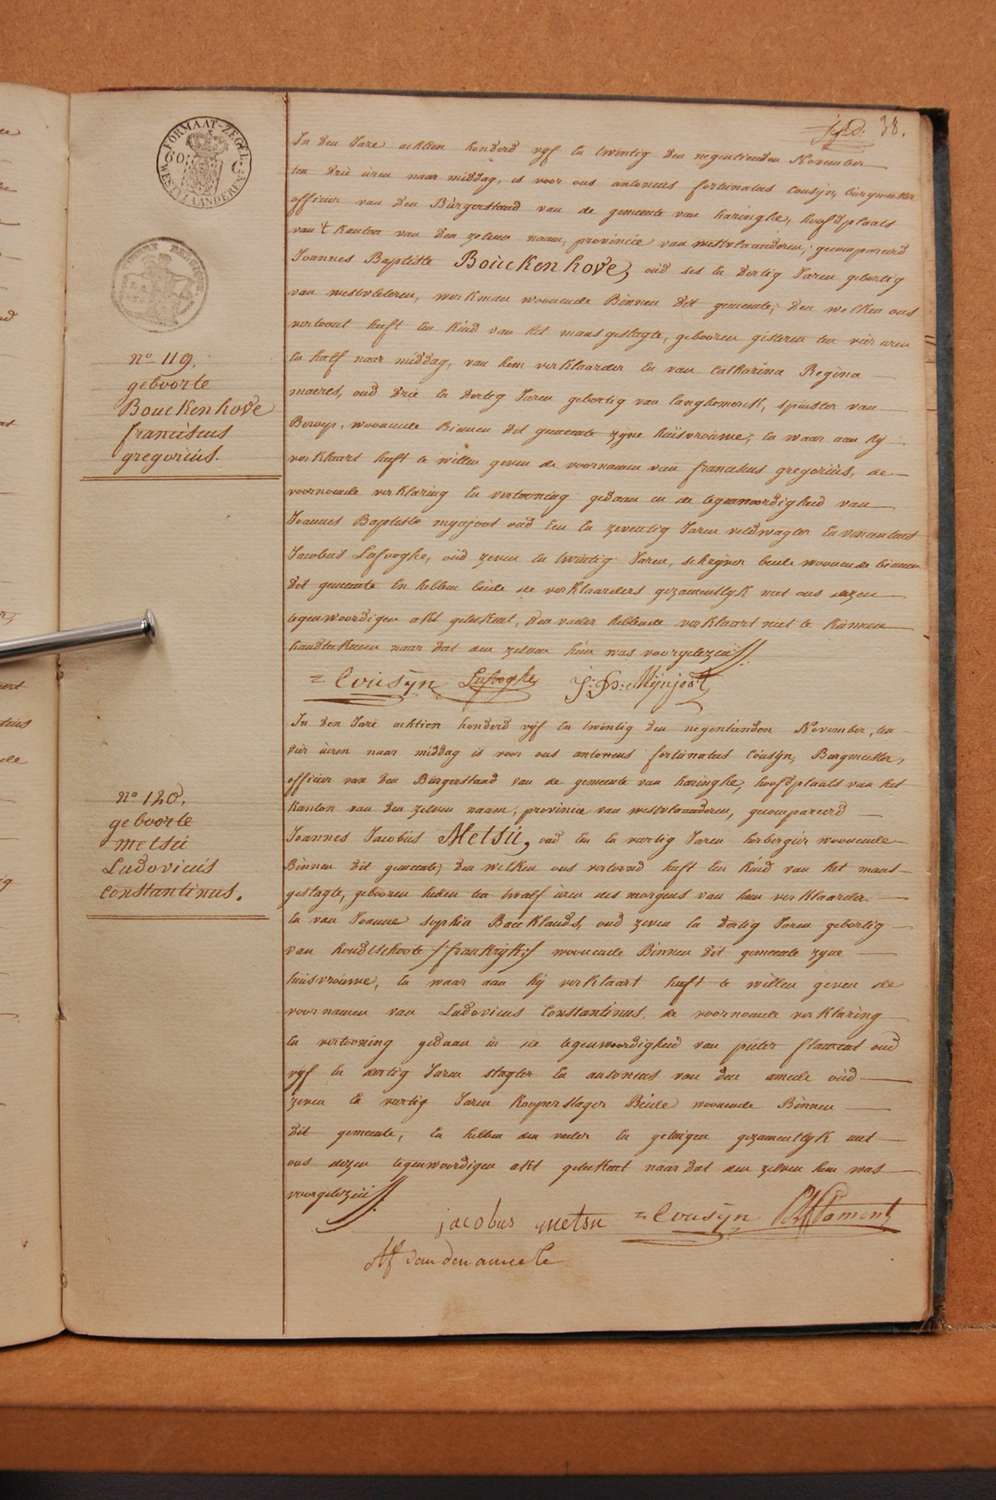 38.
FORMAAT-ZEGEL
WESTVLAANDEREN
no 119.
geboorte
Bouckenhove
franciscus
gregoriüs.
In den Jare achtien honderd vyf en twintig den negentienden November
ten drie uren naar middag, is voor ons antonius fortunatus cousyn, burgmeester
officier van den Bürgerstand van de gemeente van haringhe, hoofdplaats
van 't kanton van den zelven naam, provincie van westvlaanderen, gecompareerd
Joannes Baptiste Boückenhove, oüd ses en dertig Jaren gebortig
van westvleteren, werkman woonende Binnen dit gemeente, den welken ons
vertoont heeft een kind van het mansgeslagte, gebooren gisteren ten vier uren
en half naar middag, van hem verklaarder en van Catharina Regina
maerel, oud drie en dertig Jaren gebortig van langhemerck, spinster van
Beroep, woonende Binnen dit gemeente zyne huisvrouwe; en waar aan hy
verklaart heeft te willen geven de voornamen van franciscus gregoriüs, de
voornoemde verklaring en vertooning gedaan in de tegenwoordigheid van
Joannes Baptiste mynjoot oud een en zeventig Jaren veldwagter en van
Jacobus Lafooghe, oüd zeven en twintig Jaren, schryver beide woonende binnen
dit gemeente en hebben beide de verklaarders gezamentlyk met ons dezen
tegenwoordigen akt geteekent, den vader hebbende verklaart niet te kunnen
handteekenen naar dat den zelven hem was voorgelezen
= Cousÿn Lafooghe J: B: Mÿnjoot
no 120.
geboorte
metsü
Ludovicüs
Constantinus.
In den Jare achtien honderd vyf en twintig den negentienden November, ten
vier üren naar middag is voor ons antonius fortunatus Cousyn, Burgmeester,
officier van den Bürgerstaad van de gemeente van haringhe, hoofdplaats van het
Kanton van den zelven naam, provincie van westvlaanderen, gecompareerd
Joannes Jacobüs Metsü, oud en veertig Jaren herbergier woonende
Binnen dit gemeente; den welken ons vertoond heeft een kind van het mans
geslagte, gebooren heden ten twalf üren des morgens van hem verklaarder
en van Joanne Sophia Baecklandt, oud zeven en dertig Jaren gebortig
van hondschoote /frankryk/ woonende Binnen dit gemeente zyne
huisvroüwe, en waar aan hy verklaart heeft te willen geven de
voornamen van Ludovicus Constantinus. de voornoemde verklaring
en vertooning gedaan in de tegenwoordigheid van pieter flament oud
vyf en dertig Jaren slagter en antonius van den ameele oüd
zeven en veertig Jaren kooperslager Beide woonende Binnen
dit gemeente, en hebben den vader en getuigen gezamentlyk met
ons dezen tegenwoordigen akt geteekent naar dat den zelven hem was
voorgelezen
jacobus metsu = Cousÿn Flament
Af van den ameele